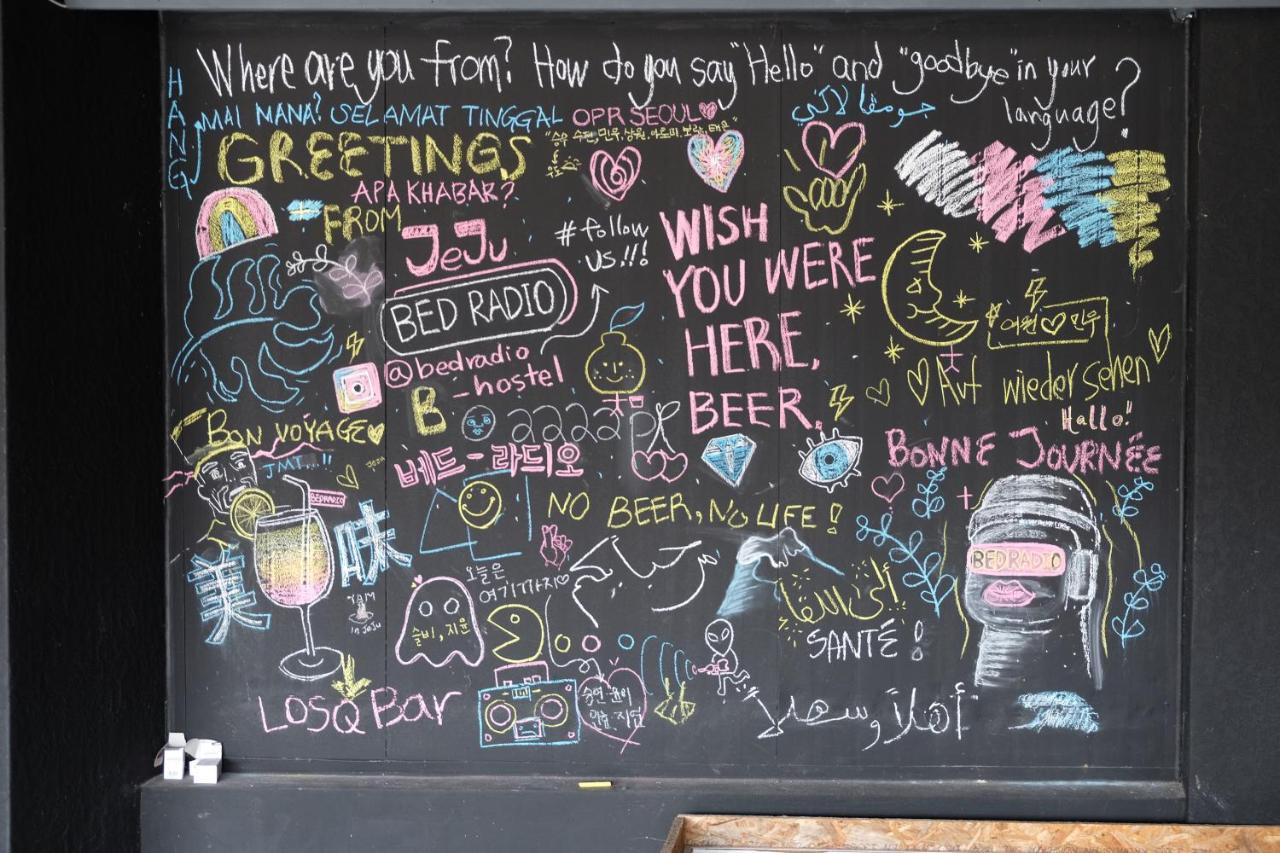 Where are you from? How do you say "Hello" and "goodbye" in your
language?
HANG
MAI MANA? SELAMAT TINGGAL
OPR SEOUL
GREETINGS
APA KHABAR?
FROM
JeJu
#follow
us!!!
BED RADIO
@bedradio
_hostel
B
WISH
YOU WERE
HERE,
BEER.
여원♡민우
Auf wiedersehen
Hallo!
BONNE JOURNÉE
BON VOYAGE
JMT...!!
BEDRADIO
aaaaa
베드-라디오
NO BEER, NO LIFE!
美味
YAM
in JeJu
오늘은
여기까지♡
슬비, 지윤
مرحبا
إلى اللقاء
SANTÉ!
BEDRADIO
LOSQ Bar
أهلاً وسهلاً